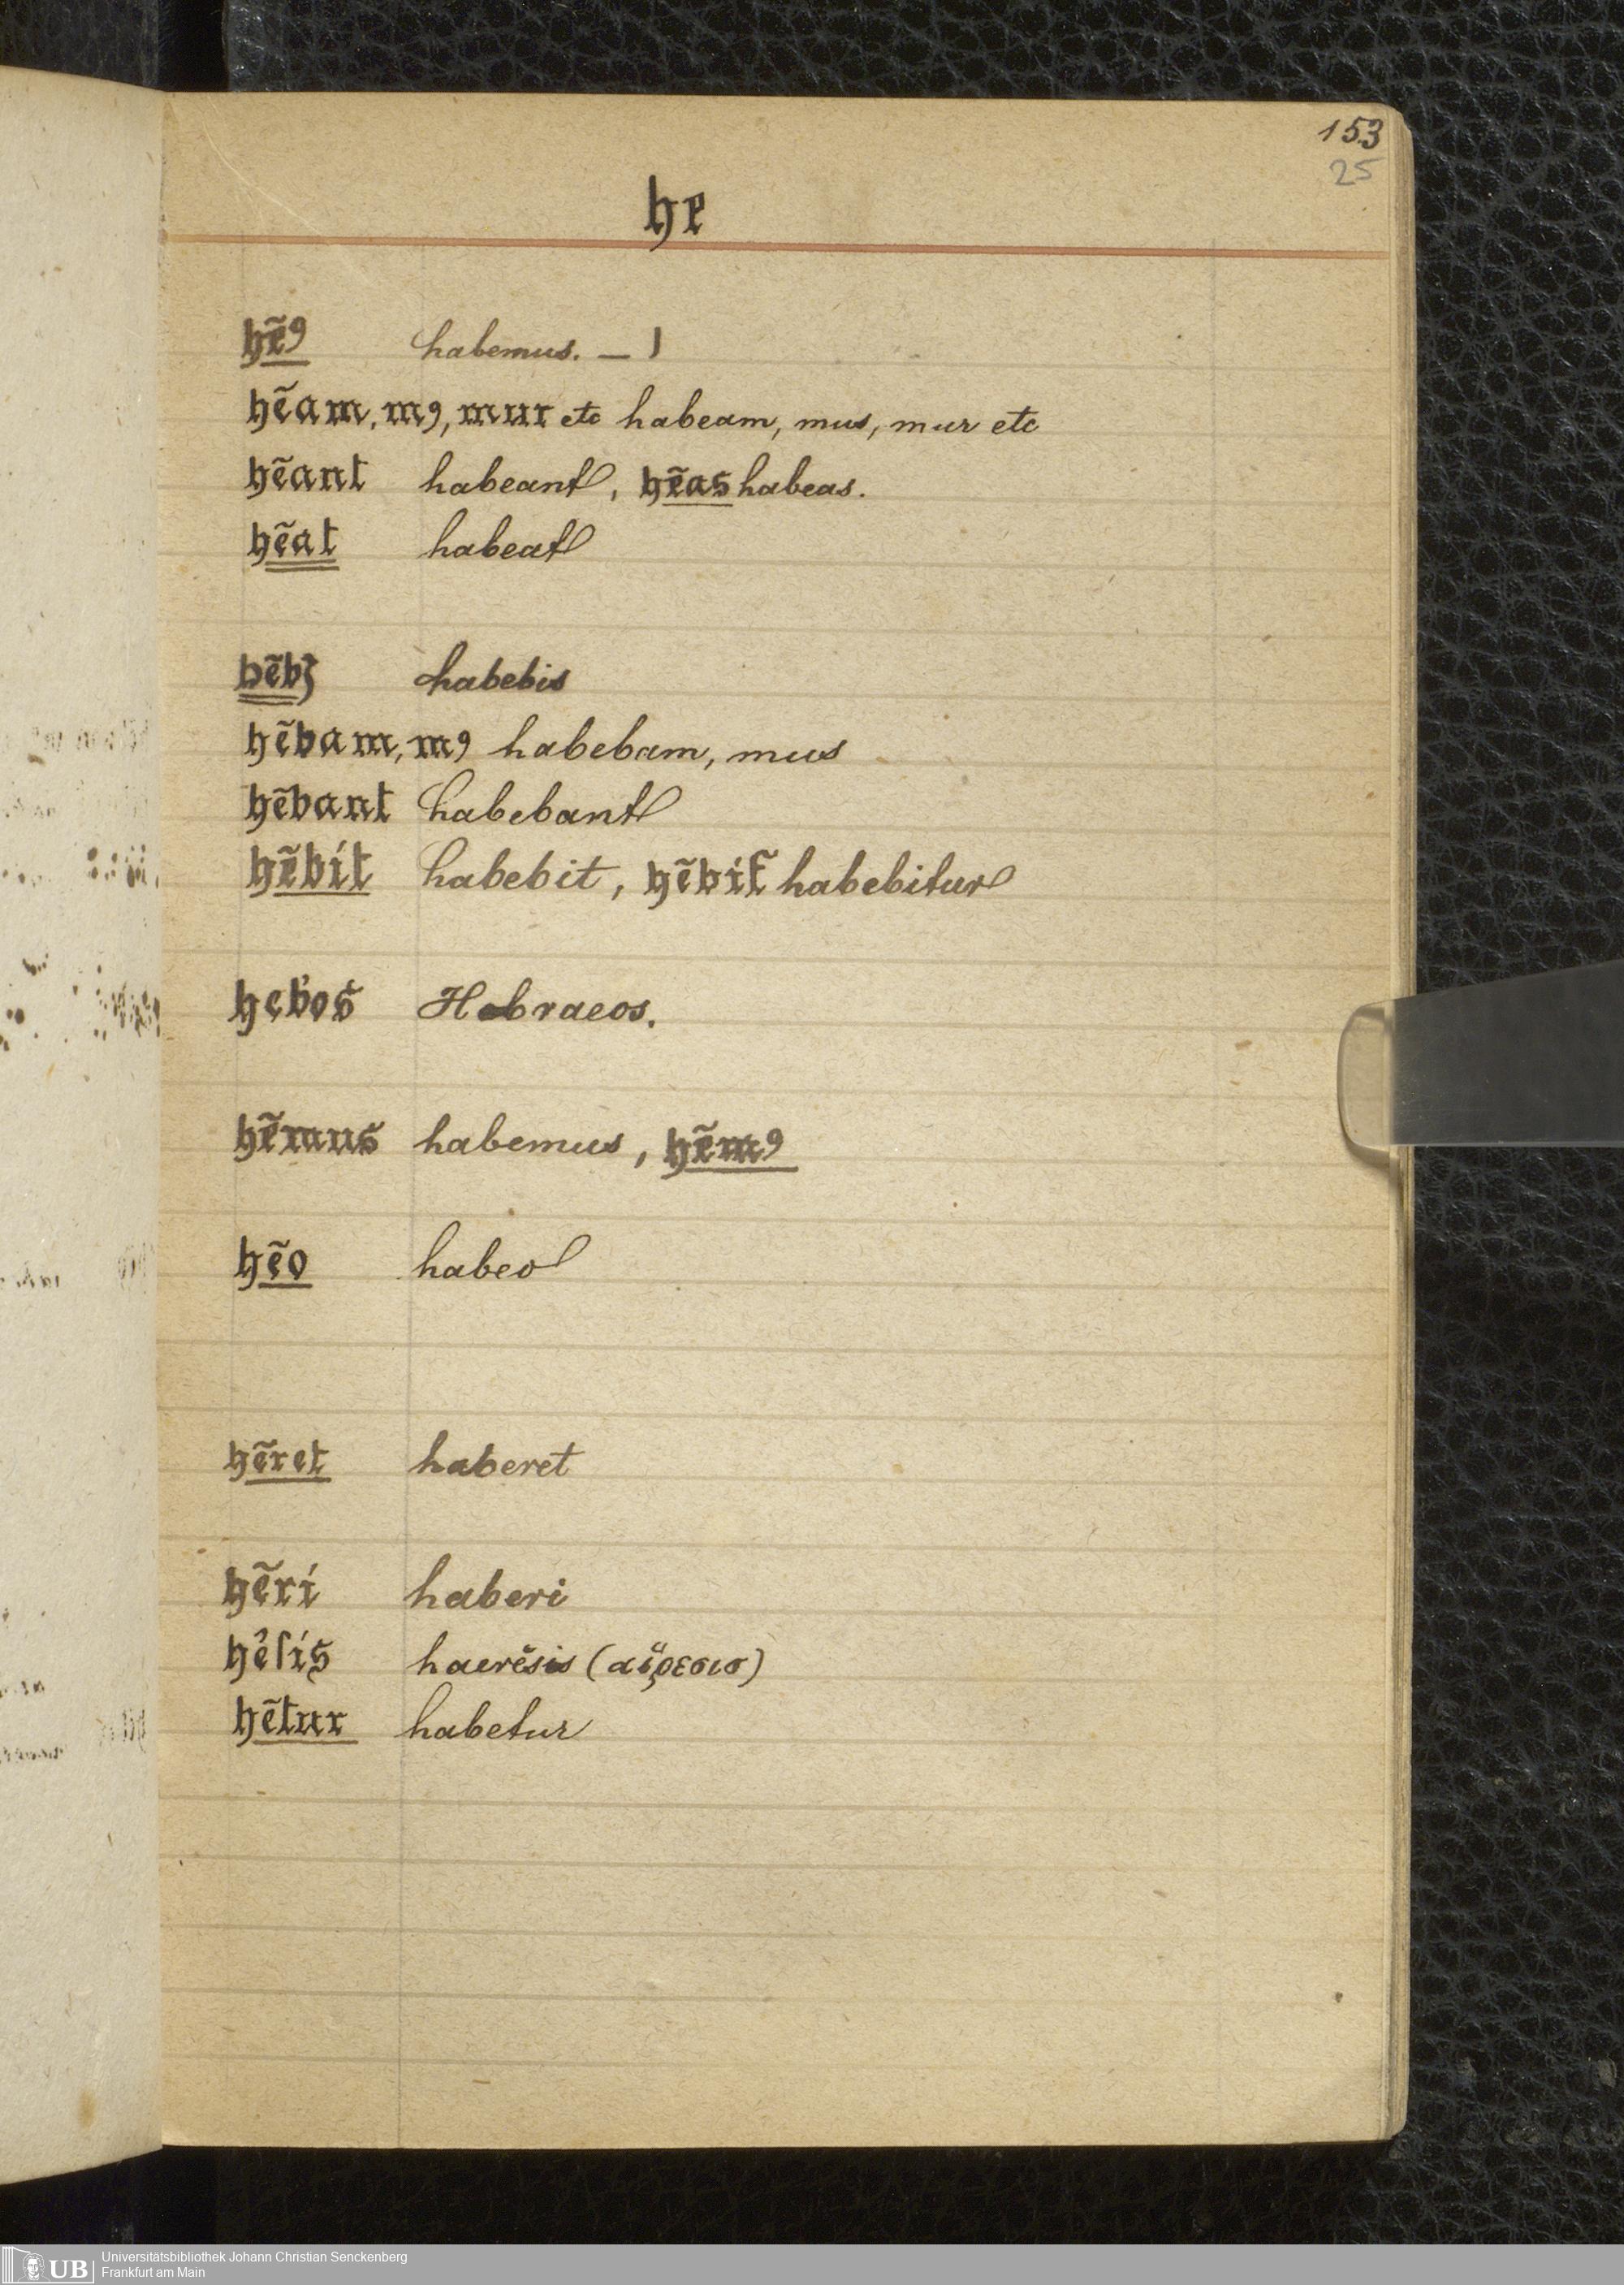 153
25
he
hẽꝰ habemus. – 1
hẽam, mꝰ, mur etc habeam, mus, mur etc
hẽant habeant, hẽas habeas.
hẽat habeat
hẽbꝫ habebis
hẽbam, mꝰ habebam, mus
hẽbant habebant
hẽbit habebit, hẽbit̃ habebitur
heb'os Hebraeos.
hẽmus habemus, hẽmꝰ
hẽo habeo
hẽret haberet
hẽri haberi
he'sis haerĕsis (αἵρεσισ)
hẽtur habetur
UB Universitätsbibliothek Johann Christian Senckenberg
Frankfurt am Main